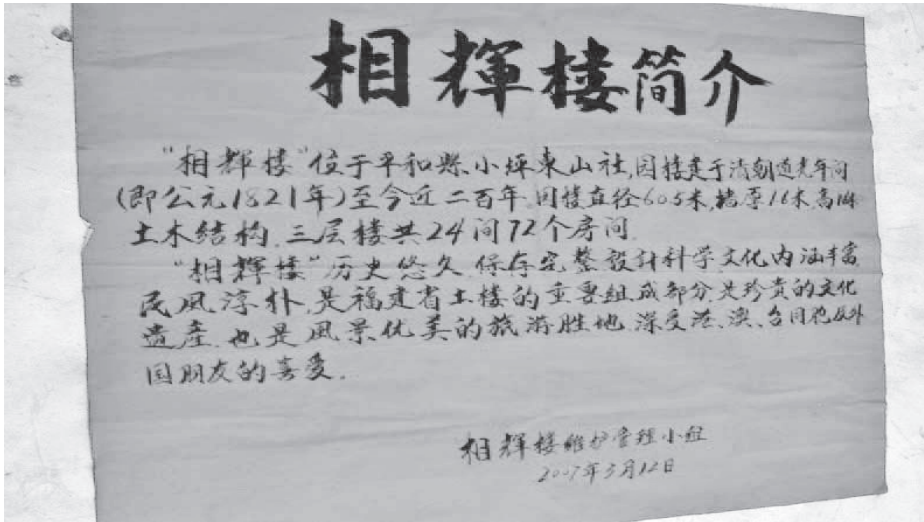 相輝楼简介
"相輝楼"位于平和县小坪東山社,因楼建于清朝道光年间
(即公元1821年)至今近二百年,因楼直径60.5米,墙厚1.6米,高14米
土木结构,三层楼共24间72个房间.
"相輝楼"历史悠久,保存完整設計科学,文化内涵丰富,
民風淳朴,是福建省土楼的重要组成部分,是珍贵的文化
遗產,也是風景优美的旅游胜地,深受港、澳、台同胞及外
国朋友的喜爱.
相輝楼維护管理小组
2007年3月12日